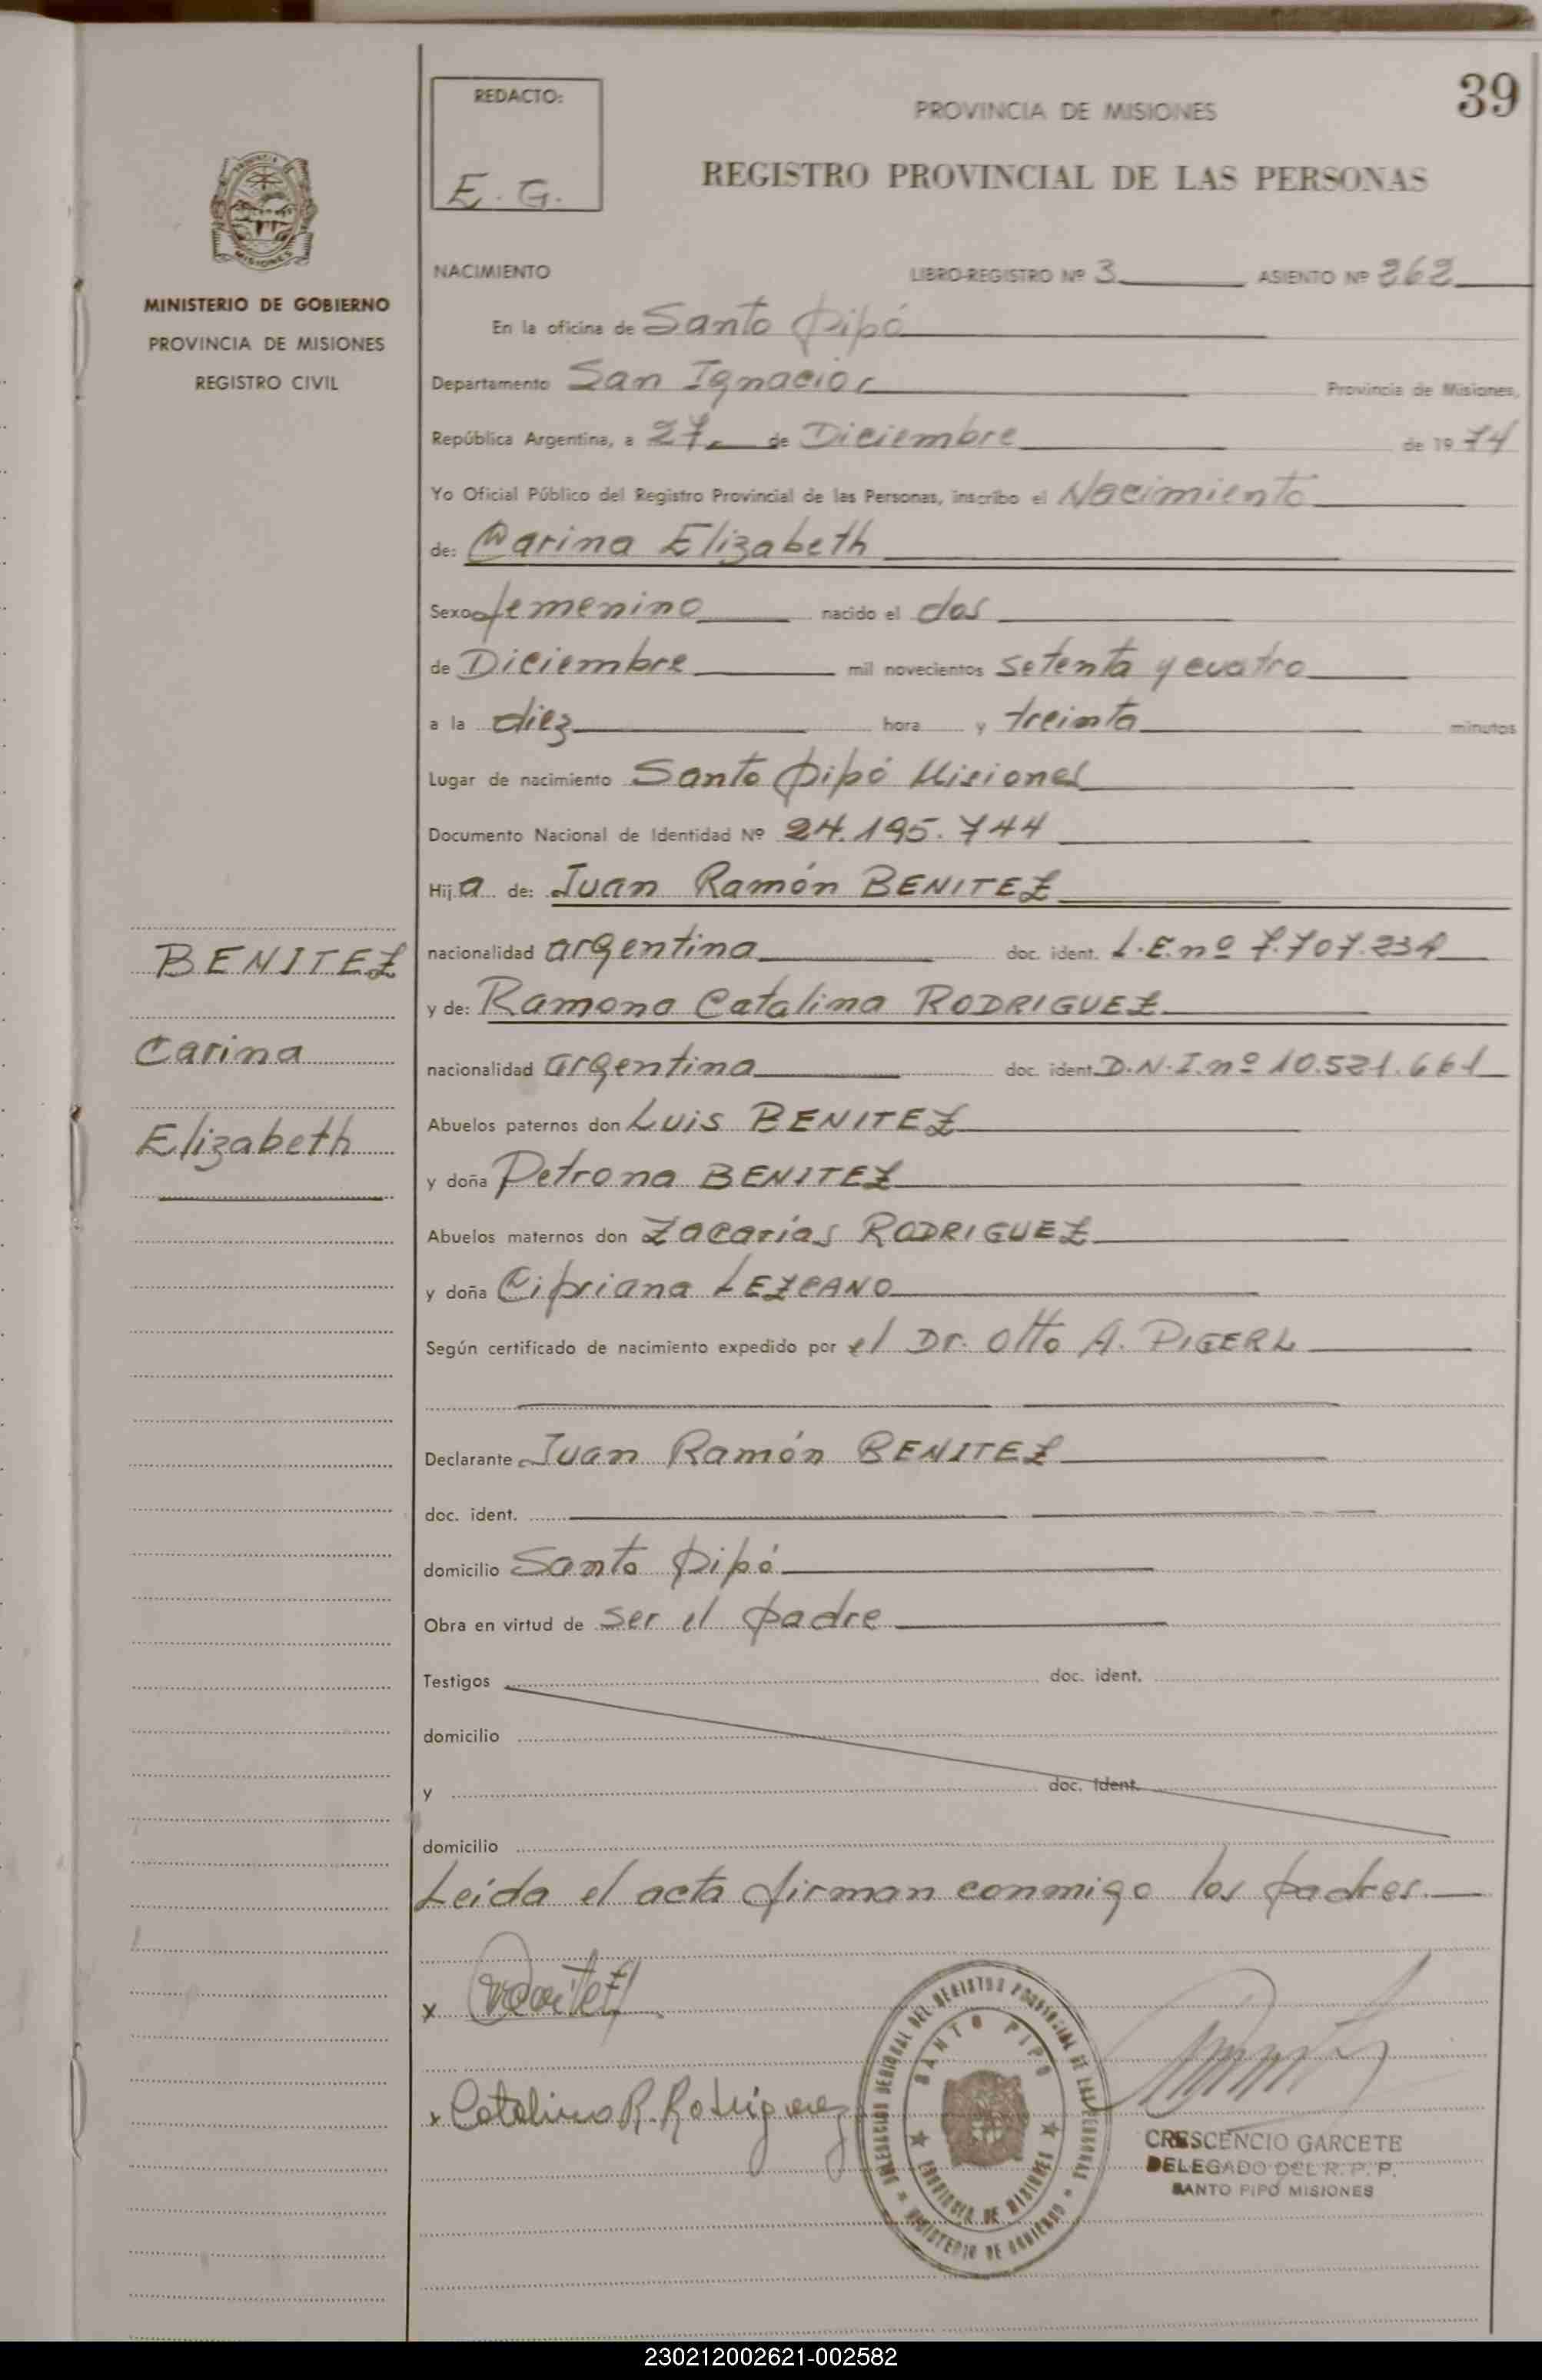 39
REDACTO:
E. G.
PROVINCIA DE MISIONES
REGISTRO PROVINCIAL DE LAS PERSONAS
MINISTERIO DE GOBIERNO
PROVINCIA DE MISIONES
REGISTRO CIVIL
NACIMIENTO LIBRO-REGISTRO Nº 3 ASIENTO Nº 262
En la oficina de Santo Pipó
Departamento San Ignacio Provincia de Misiones,
República Argentina, a 27 de Diciembre de 1974
Yo Oficial Público del Registro Provincial de las Personas, inscribo el Nacimiento
de: Carina Elizabeth
Sexo femenino nacido el dos
de Diciembre mil novecientos setenta y cuatro
a la diez hora y treinta minutos
Lugar de nacimiento Santo Pipó Misiones
Documento Nacional de Identidad Nº 24.195.744
Hija de: Juan Ramón BENITEZ
nacionalidad argentina doc. ident. L.E. nº 7.707.231
y de: Ramona Catalina RODRIGUEZ
nacionalidad argentina doc. ident. D.N.I. nº 10.521.661
Abuelos paternos don Luis BENITEZ
y doña Petrona BENITEZ
Abuelos maternos don Zacarías RODRIGUEZ
y doña Cipriana LEZCANO
Según certificado de nacimiento expedido por el Dr. Otto A. PIGERL
Declarante Juan Ramón BENITEZ
doc. ident.
domicilio Santo Pipó
Obra en virtud de ser el padre
Testigos doc. ident.
domicilio
y doc. ident.
domicilio
Leída el acta firman conmigo los padres.
BENITEZ
Carina
Elizabeth
x
x Catalina R. Rodriguez
DELEGACION REGIONAL DEL REGISTRO PROVINCIAL DE LAS PERSONAS
MINISTERIO DE GOBIERNO
SANTO PIPO
PROVINCIA DE MISIONES
CRESCENCIO GARCETE
DELEGADO DEL R. P. P.
SANTO PIPO MISIONES
230212002621-002582